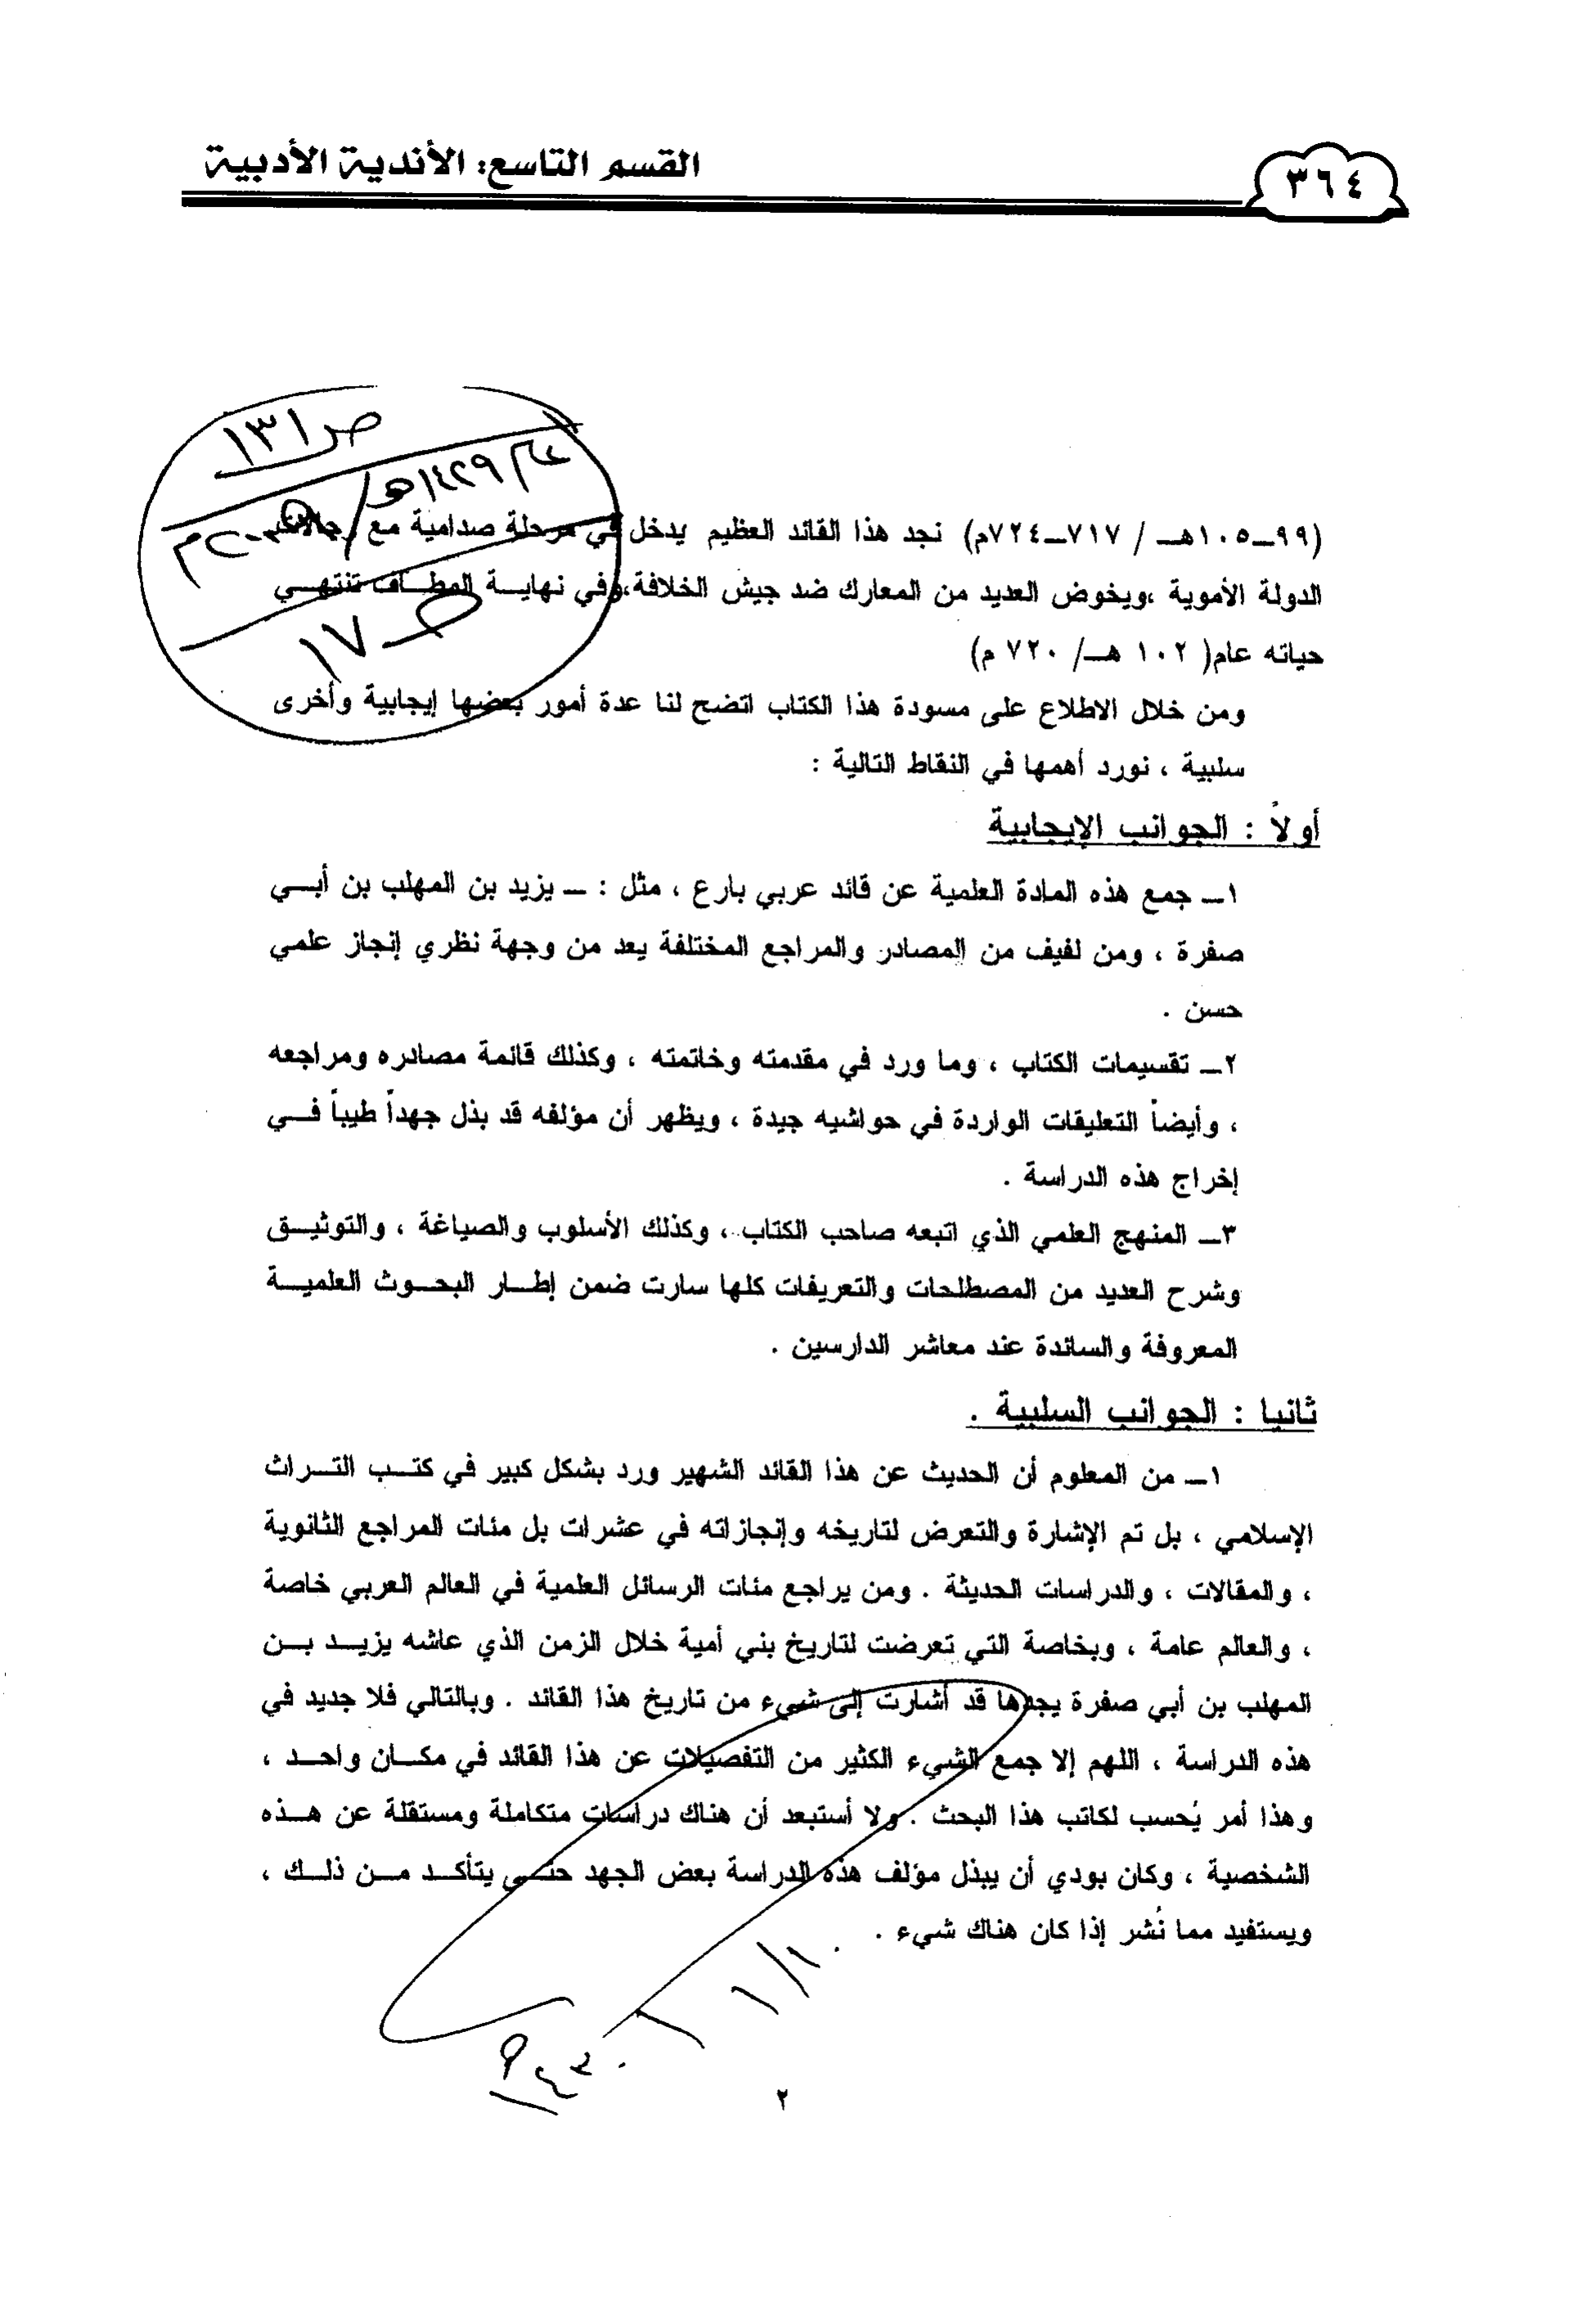 ٣٦٤
القسم التاسع: الأندية الأدبية
ص ١٣١
١٤٢٩هـ
١٧
(٩٩ــ١٠٥هـــ / ٧١٧ــ٧٢٤م) نجد هذا القائد العظيم يدخل في مرحلة صدامية مع رجالات
الدولة الأموية ،ويخوض العديد من المعارك ضد جيش الخلافة،وفي نهايـــة المطـــاف تنتهـــي
حياته عام( ١٠٢ هـــ/ ٧٢٠ م)
ومن خلال الاطلاع على مسودة هذا الكتاب اتضح لنا عدة أمور بعضها إيجابية وأخرى
سلبية ، نورد أهمها في النقاط التالية :
أولاً : الجوانب الإيجابية
١ــ جمع هذه المادة العلمية عن قائد عربي بارع ، مثل : ــ يزيد بن المهلب بن أبـــي
صفرة ، ومن لفيف من المصادر والمراجع المختلفة يعد من وجهة نظري إنجاز علمي
حسن .
٢ــ تقسيمات الكتاب ، وما ورد في مقدمته وخاتمته ، وكذلك قائمة مصادره ومراجعه
، وأيضاً التعليقات الواردة في حواشيه جيدة ، ويظهر أن مؤلفه قد بذل جهداً طيباً فـــي
إخراج هذه الدراسة .
٣ــ المنهج العلمي الذي اتبعه صاحب الكتاب ، وكذلك الأسلوب والصياغة ، والتوثيـــق
وشرح العديد من المصطلحات والتعريفات كلها سارت ضمن إطـــار البحـــوث العلميـــة
المعروفة والسائدة عند معاشر الدارسين .
ثانيا : الجوانب السلبية .
١ــ من المعلوم أن الحديث عن هذا القائد الشهير ورد بشكل كبير في كتـــب التـــراث
الإسلامي ، بل تم الإشارة والتعرض لتاريخه وإنجازاته في عشرات بل مئات المراجع الثانوية
، والمقالات ، والدراسات الحديثة . ومن يراجع مئات الرسائل العلمية في العالم العربي خاصة
، والعالم عامة ، وبخاصة التي تعرضت لتاريخ بني أمية خلال الزمن الذي عاشه يزيـــد بـــن
المهلب بن أبي صفرة يجدها قد أشارت إلى شيء من تاريخ هذا القائد . وبالتالي فلا جديد في
هذه الدراسة ، اللهم إلا جمع الشيء الكثير من التفصيلات عن هذا القائد في مكـــان واحـــد ،
وهذا أمر يُحسب لكاتب هذا البحث . ولا أستبعد أن هناك دراسات متكاملة ومستقلة عن هـــذه
الشخصية ، وكان بودي أن يبذل مؤلف هذه الدراسة بعض الجهد حتـــى يتأكـــد مـــن ذلـــك ،
ويستفيد مما نُشر إذا كان هناك شيء .
٢